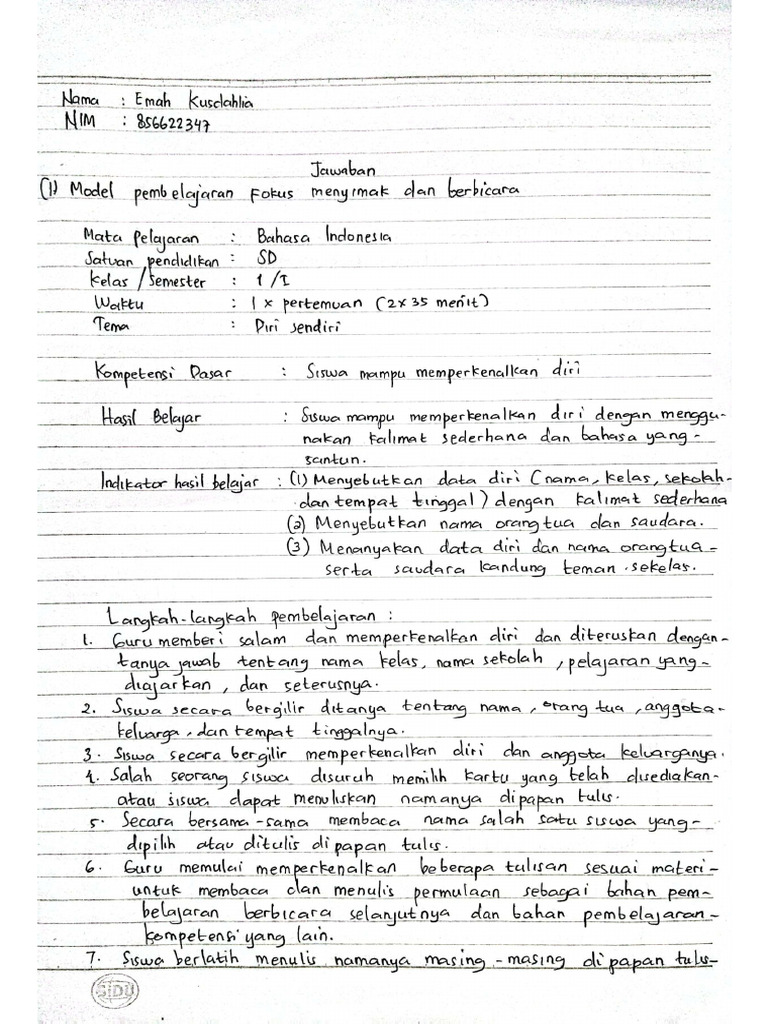 Nama : Emah Kusdahlia
NIM : 856622347
Jawaban
(1) Model pembelajaran Fokus menyimak dan berbicara
Mata Pelajaran : Bahasa Indonesia
Satuan pendidikan : SD
Kelas / Semester : 1 / I
Waktu : 1 x pertemuan (2 x 35 menit)
Tema : Diri sendiri
Kompetensi Dasar : Siswa mampu memperkenalkan diri
Hasil Belajar : Siswa mampu memperkenalkan diri dengan menggu-
nakan kalimat sederhana dan bahasa yang-
santun.
Indikator hasil belajar : (1) Menyebutkan data diri (nama, kelas, sekolah-
dan tempat tinggal) dengan kalimat sederhana
(2) Menyebutkan nama orangtua dan saudara.
(3) Menanyakan data diri dan nama orangtua-
serta saudara kandung teman sekelas.
Langkah-langkah pembelajaran :
1. Guru memberi salam dan memperkenalkan diri dan diteruskan dengan-
tanya jawab tentang nama kelas, nama sekolah, pelajaran yang-
diajarkan, dan seterusnya.
2. Siswa secara bergilir ditanya tentang nama, orang tua, anggota-
keluarga, dan tempat tinggalnya.
3. Siswa secara bergilir memperkenalkan diri dan anggota keluarganya.
4. Salah seorang siswa disuruh memilih kartu yang telah disediakan-
atau siswa dapat menuliskan namanya dipapan tulis.
5. Secara bersama-sama membaca nama salah satu siswa yang-
dipilih atau ditulis dipapan tulis.
6. Guru memulai memperkenalkan beberapa tulisan sesuai materi-
untuk membaca dan menulis permulaan sebagai bahan pem-
belajaran berbicara selanjutnya dan bahan pembelajaran-
kompetensi yang lain.
7. Siswa berlatih menulis namanya masing-masing dipapan tulis-
SIDU